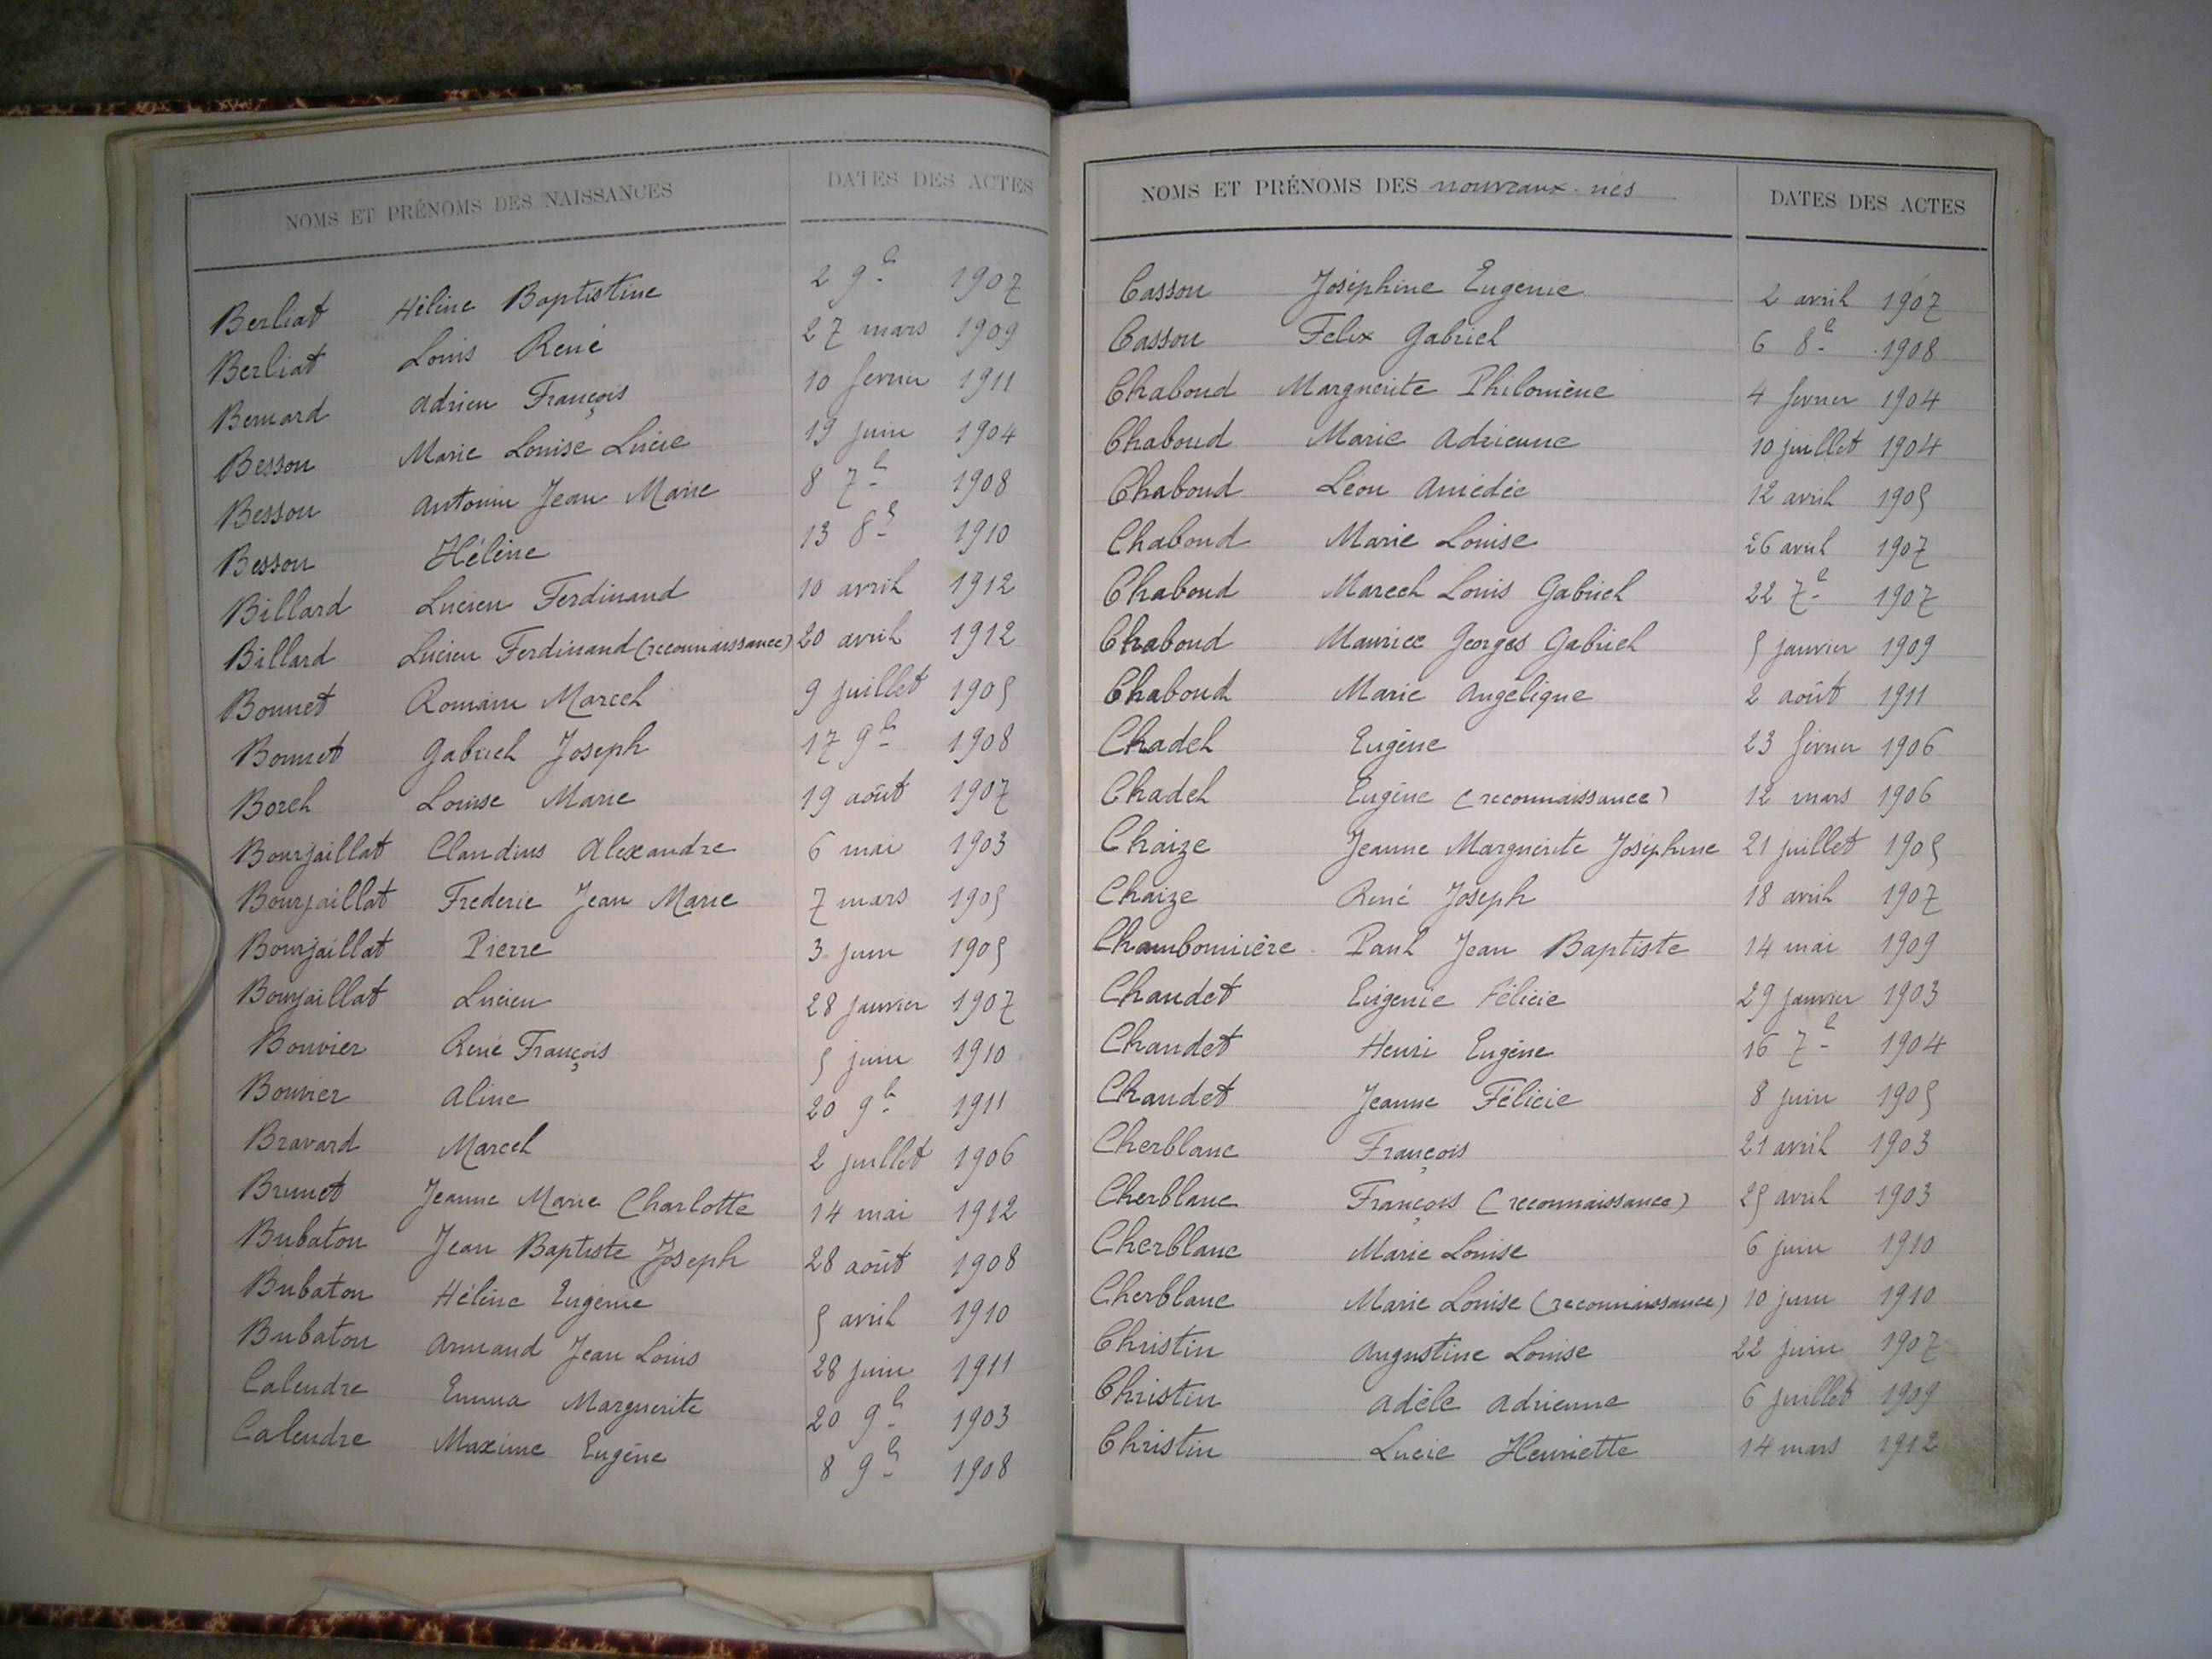 NOMS ET PRÉNOMS DES NAISSANCES DATES DES ACTES
Berliat Hélène Baptistine 2 9b 1907
Berliat Louis René 27 mars 1909
Bernard Adrien François 10 fevrier 1911
Besson Marie Louise Lucie 19 juin 1904
Besson Antonin Jean Marie 8 7b 1908
Besson Hélène 13 8b 1910
Billard Lucien Ferdinand 10 avril 1912
Billard Lucien Ferdinand (reconnaissance) 20 avril 1912
Bonnet Romain Marcel 9 juillet 1905
Bonnet Gabriel Joseph 17 9b 1908
Borel Louise Marie 19 août 1907
Bourjaillat Claudius Alexandre 6 mai 1903
Bourjaillat Frederic Jean Marie 7 mars 1905
Bourjaillat Pierre 3 juin 1905
Bourjaillat Lucien 28 janvier 1907
Bouvier René François 5 juin 1910
Bouvier Aline 20 9b 1911
Bravard Marcel 2 juillet 1906
Brunet Jeanne Marie Charlotte 14 mai 1912
Bubaton Jean Baptiste Joseph 28 août 1908
Bubaton Hélène Eugénie 5 avril 1910
Bubaton Armand Jean Louis 28 juin 1911
Calendre Emma Marguerite 20 9b 1903
Calendre Maxime Eugène 8 9b 1908
NOMS ET PRÉNOMS DES nouveaux-nés DATES DES ACTES
Casson Joséphine Eugénie 2 avril 1907
Casson Felix Gabriel 6 8b 1908
Chaboud Marguerite Philomène 4 fevrier 1904
Chaboud Marie Adrienne 10 juillet 1904
Chaboud Léon Amédée 12 avril 1905
Chaboud Marie Louise 26 avril 1907
Chaboud Marcel Louis Gabriel 22 7b 1907
Chaboud Maurice Georges Gabriel 5 janvier 1909
Chaboud Marie Angélique 2 août 1911
Chadel Eugène 23 février 1906
Chadel Eugène (reconnaissance) 12 mars 1906
Chaize Jeanne Marguerite Joséphine 21 juillet 1905
Chaize René Joseph 18 avril 1907
Chambonnière Paul Jean Baptiste 14 mai 1909
Chaudet Eugénie Félicie 29 janvier 1903
Chaudet Henri Eugène 16 7b 1904
Chaudet Jeanne Félicie 8 juin 1905
Cherblanc François 21 avril 1903
Cherblanc François (reconnaissance) 25 avril 1903
Cherblanc Marie Louise 6 juin 1910
Cherblanc Marie Louise (reconnaissance) 10 juin 1910
Christin Augustine Louise 22 juin 1907
Christin Adèle Adrienne 6 juillet 1909
Christin Lucie Henriette 14 mars 1912